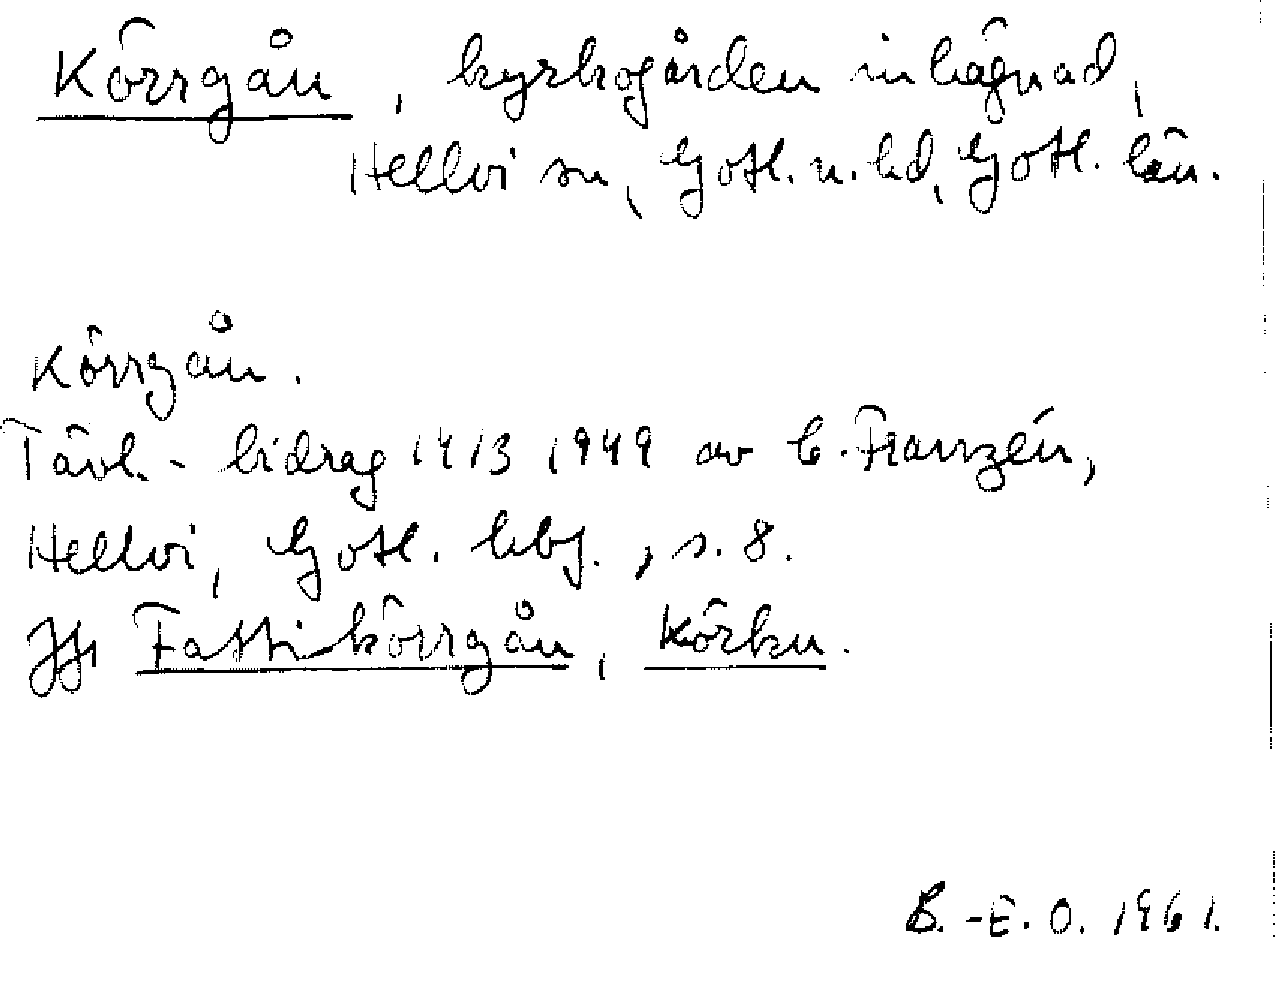 Körrgån, kyrkogården inhägnad,
Hellvi sn, Gotl. n. hd, Gotl. län.
Körrgån.
Tävl.- bidrag 14/3 1949 av C. Franzén,
Hellvi, Gotl. hbf., s. 8.
Jfr Fattikörrgån, Körku.
B.-E.O. 1961.